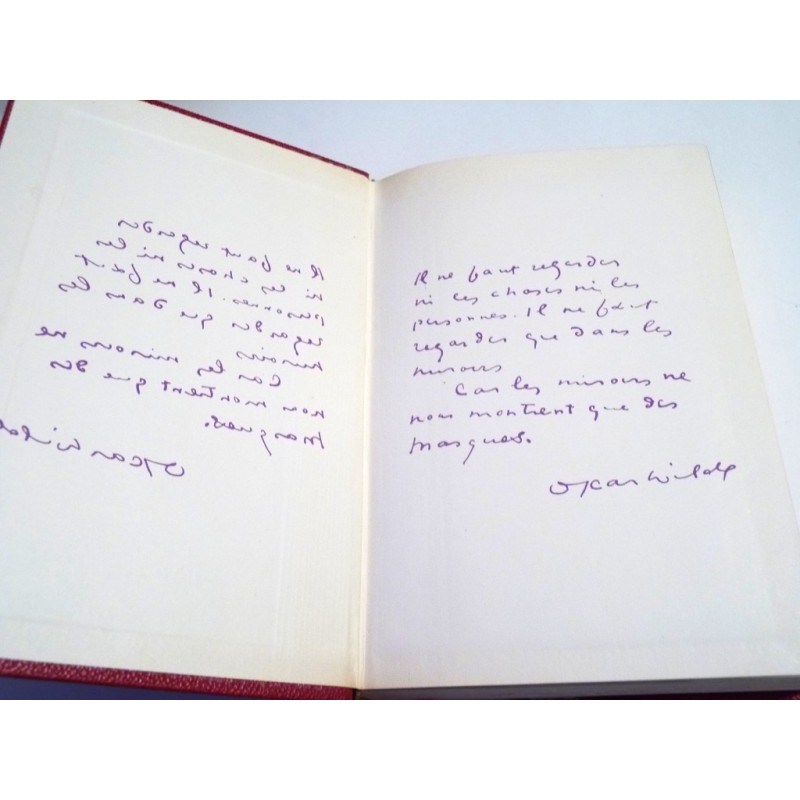 Il ne faut regarder
ni les choses ni les
personnes. Il ne faut
regarder que dans les
miroirs
Car les miroirs ne
nous montrent que des
masques.
Oscar Wilde
Il ne faut regarder
ni les choses ni les
personnes. Il ne faut
regarder que dans les
miroirs
Car les miroirs ne
nous montrent que des
masques.
Oscar Wilde